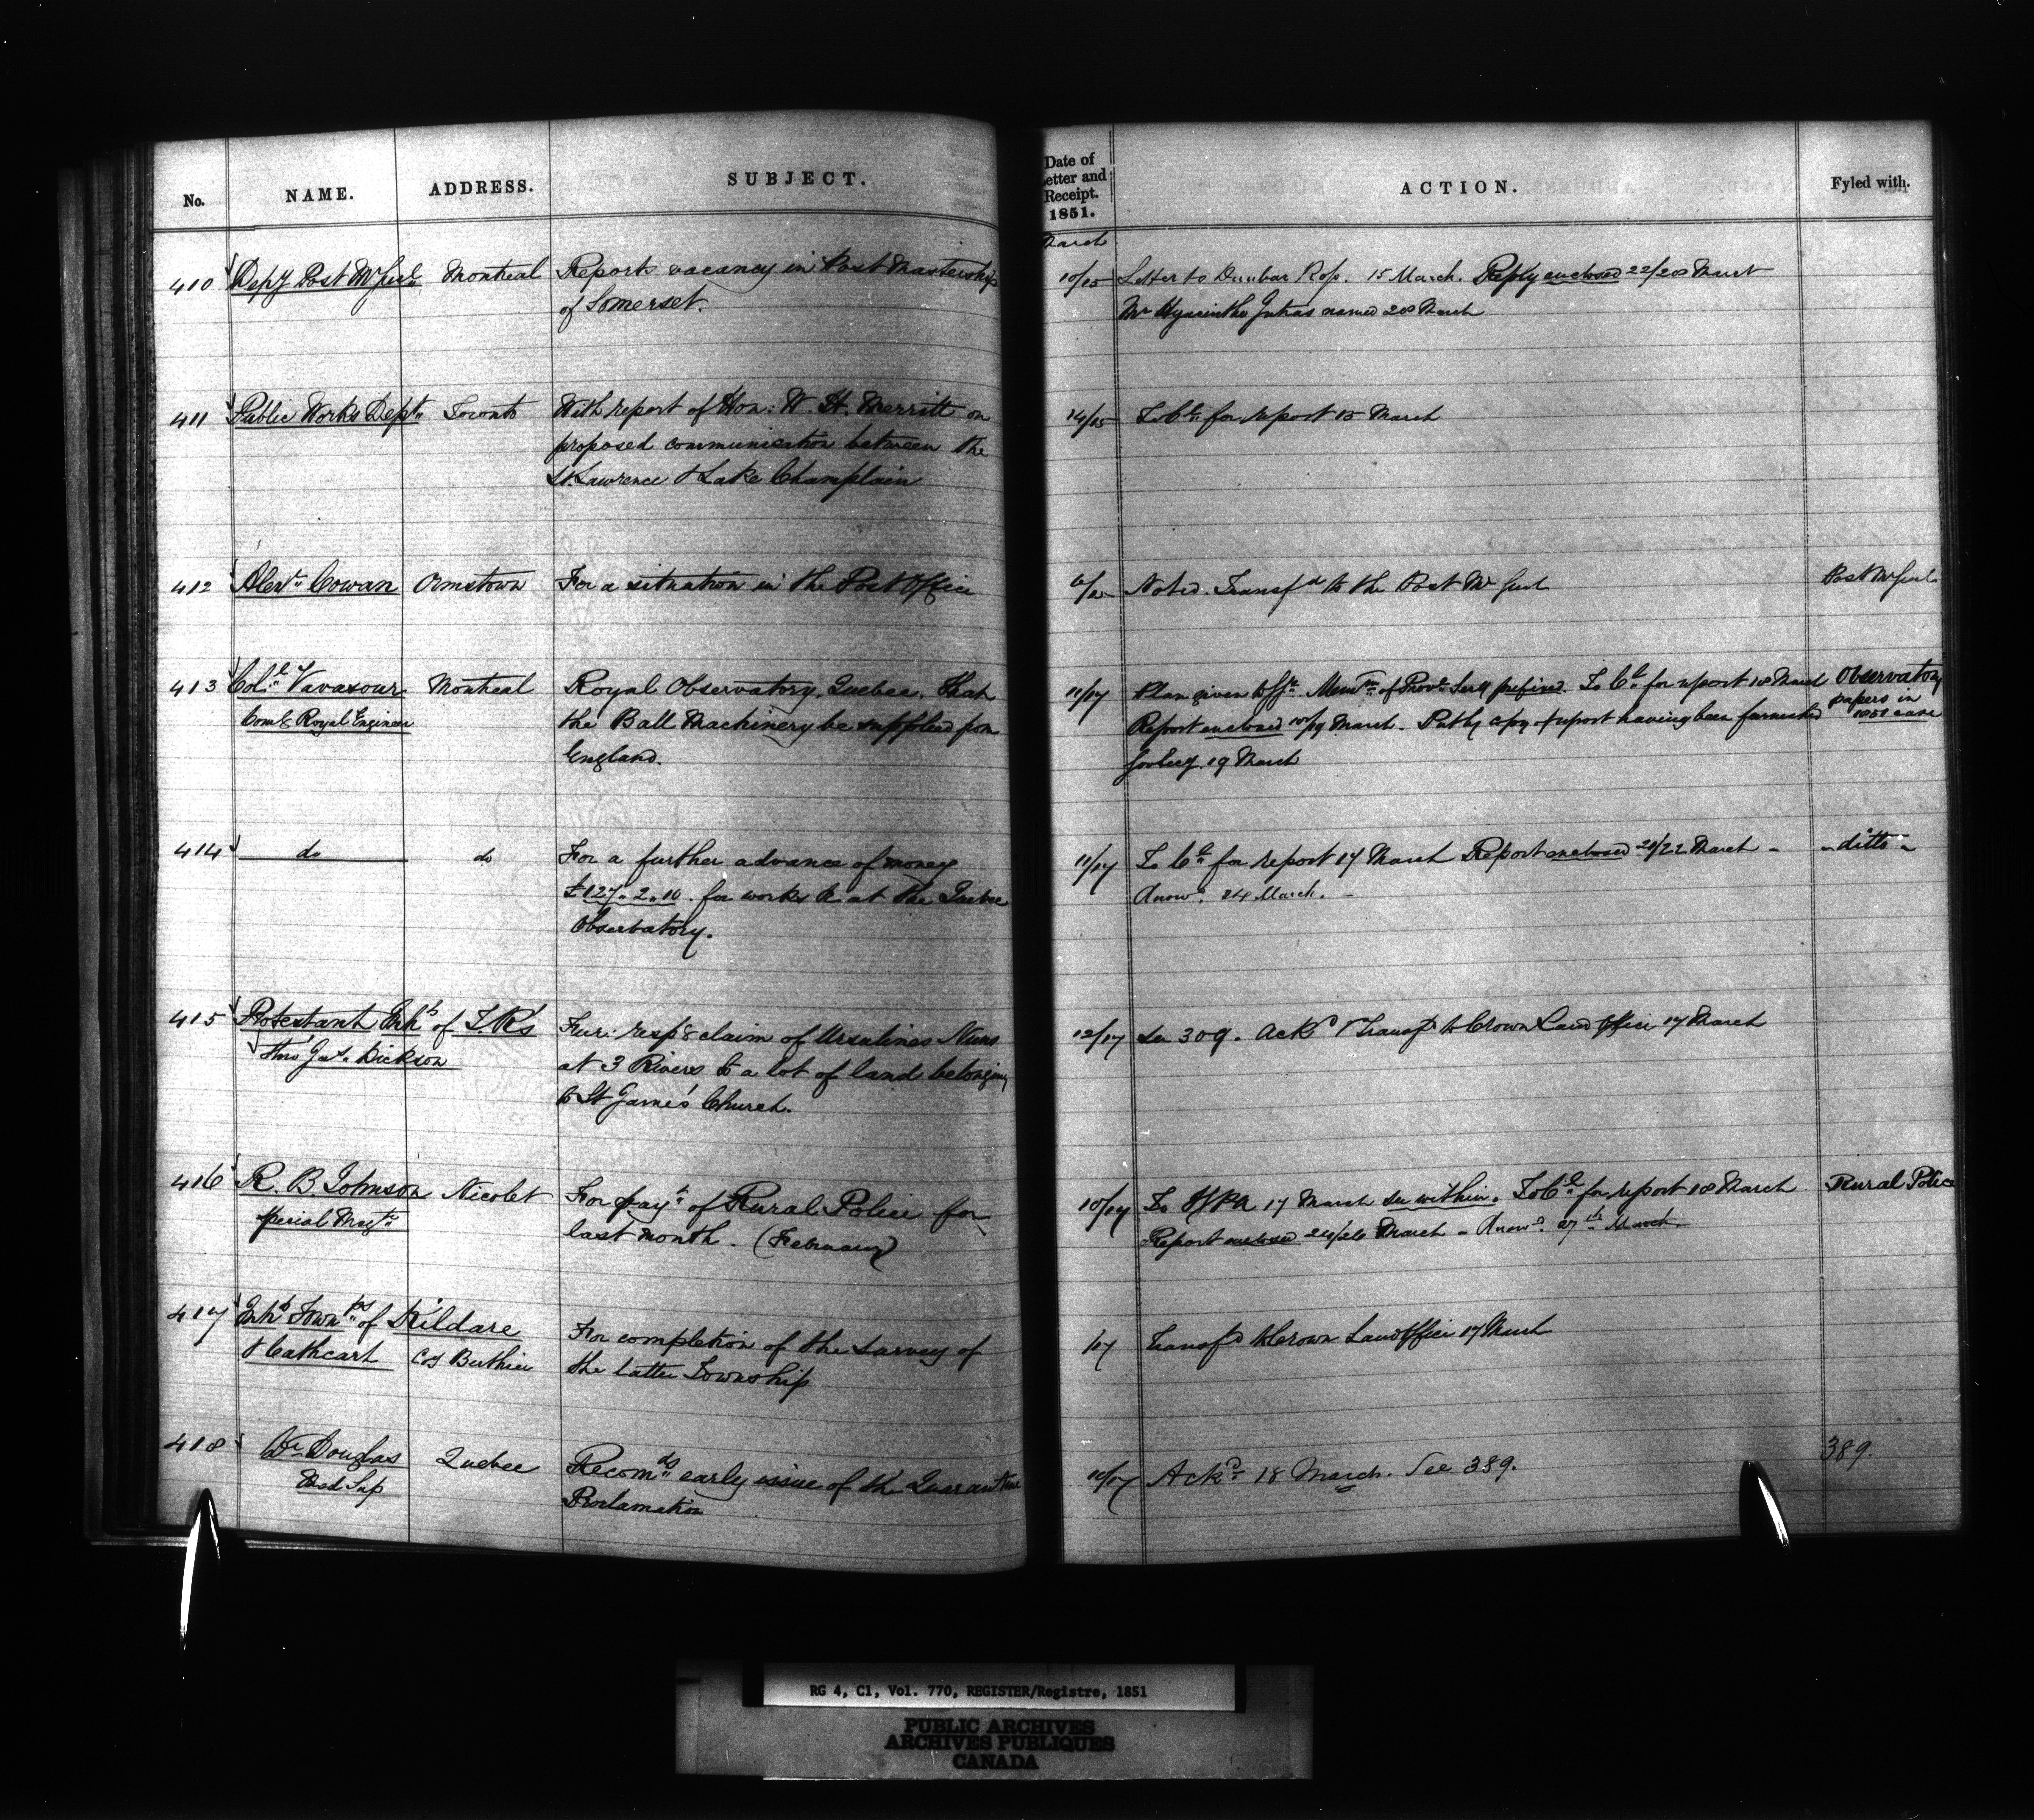 No. NAME. ADDRESS. SUBJECT. Date of Letter and Receipt. 1851. ACTION. Fyled with.
March
410 Depy Post Mr Genl Montreal Reports vacancy in Post Mastership 10/15 Letter to Dunbar Ross. 15 March. Reply enclosed 22/28 March
of Somerset. Mr Hyacinthe Jutras named 28 March
411 Public Works Dept Toronto With report of Hon: W. H. Merritt on 14/15 To Ce for report 15 March
proposed communication between the
St. Lawrence & Lake Champlain
412 Alexr Cowan Ormstown For a situation in the Post Office Noted. Transfd to the Post Mr Genl Post Mr Genl
413 Coll Vavasour Montreal Royal Observatory, Quebec. That 11/17 Plan given Memm of Provl Secy prefixed. To Ce for report 18 March Observatory
Comg Royal Engineer the Ball Machinery be supplied from Report enclosed March. Put by copy of report having been furnished papers in
England. 19 March 1850 case
414 do do For a further advance of money 11/17 To Ce for report 17 March Report enclosed 21/22 March - - ditto -
£127.2.10. for works &c at the Quebec Answd. 24 March. -
Observatory.
415 Protestant Inhbts of T. R's Fur: respg claim of Ursulines Nuns 12/17 See 309. Ackd & Transfd to Crown Land Office 17 March
Thro' Jas. Dickson at 3 Rivers to a lot of land belonging
to St Jame's Church.
416 R. B. Johnson Nicolet For payt of Rural Police for 10/17 To 17 March see within. To Ce for report 18 March Rural Police
Special Magte last month. (February) Report enclosed 24/26 March - Answd. 27th March.
417 Inhbts Townps of Kildare For completion of the survey of /17 Transfd to Crown Land Office 17 March
& Cathcart Coy Berthier the latter Township
418 Dr Douglas Quebec Recomds early issue of the Quarantine Ackd 18 March. See 389. 389.
Med Sup Proclamation
RG 4, C1, Vol. 770, REGISTER/Registre, 1851
PUBLIC ARCHIVES
ARCHIVES PUBLIQUES
CANADA